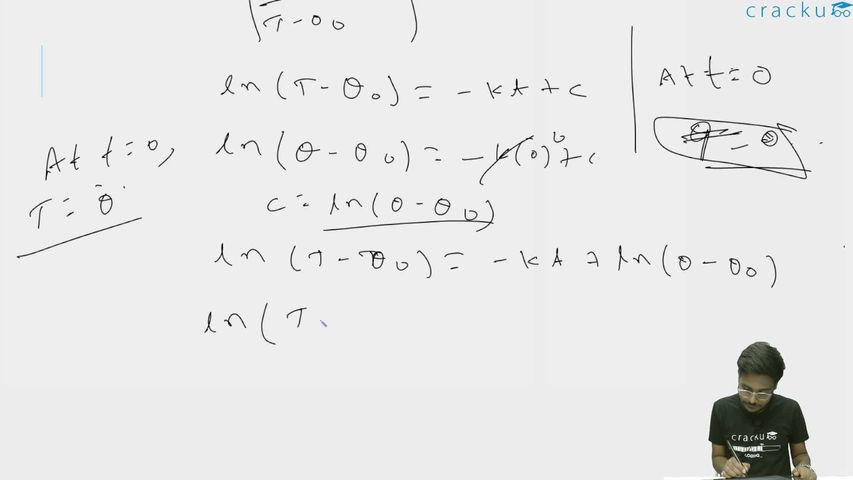 cracku
T - θ0
ln (T - θ0) = - kt + c
At t = 0
At t = 0,
ln (θ - θ0) = - k(0) 0 + c
T = θ
c = ln (θ - θ0)
ln (T - θ0) = - kt + ln (θ - θ0)
ln ( T
cracku